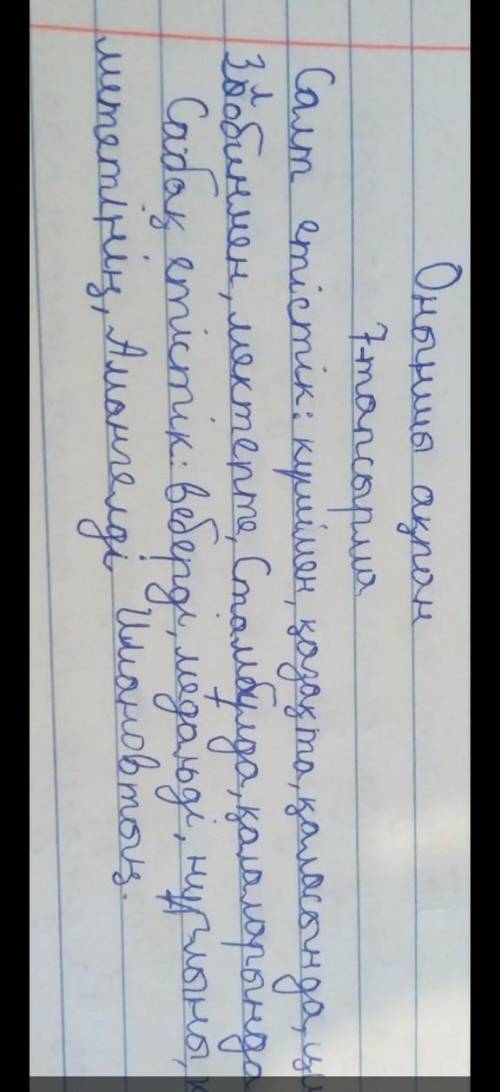 Оныншы ақпан
7-тапсырма
Салт етістік: күшімен, қазақта, қаласында, ци
Злобинмен, мектепте, Стамбулда, қалаларында
Сабақ етістік: веберді, медальді, нұр
мететінің, Амангелді Имановтың.